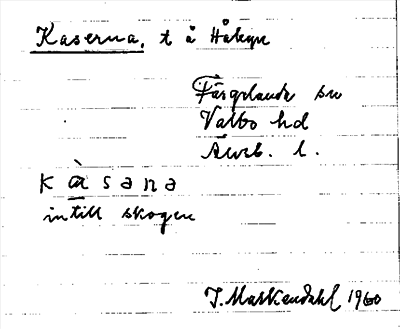 Kaserna, t å Håkyn
Färgelanda sn
Valbo hd
Älvsb. l.
kàsana
intill skogen
J. Maskendahl 1960